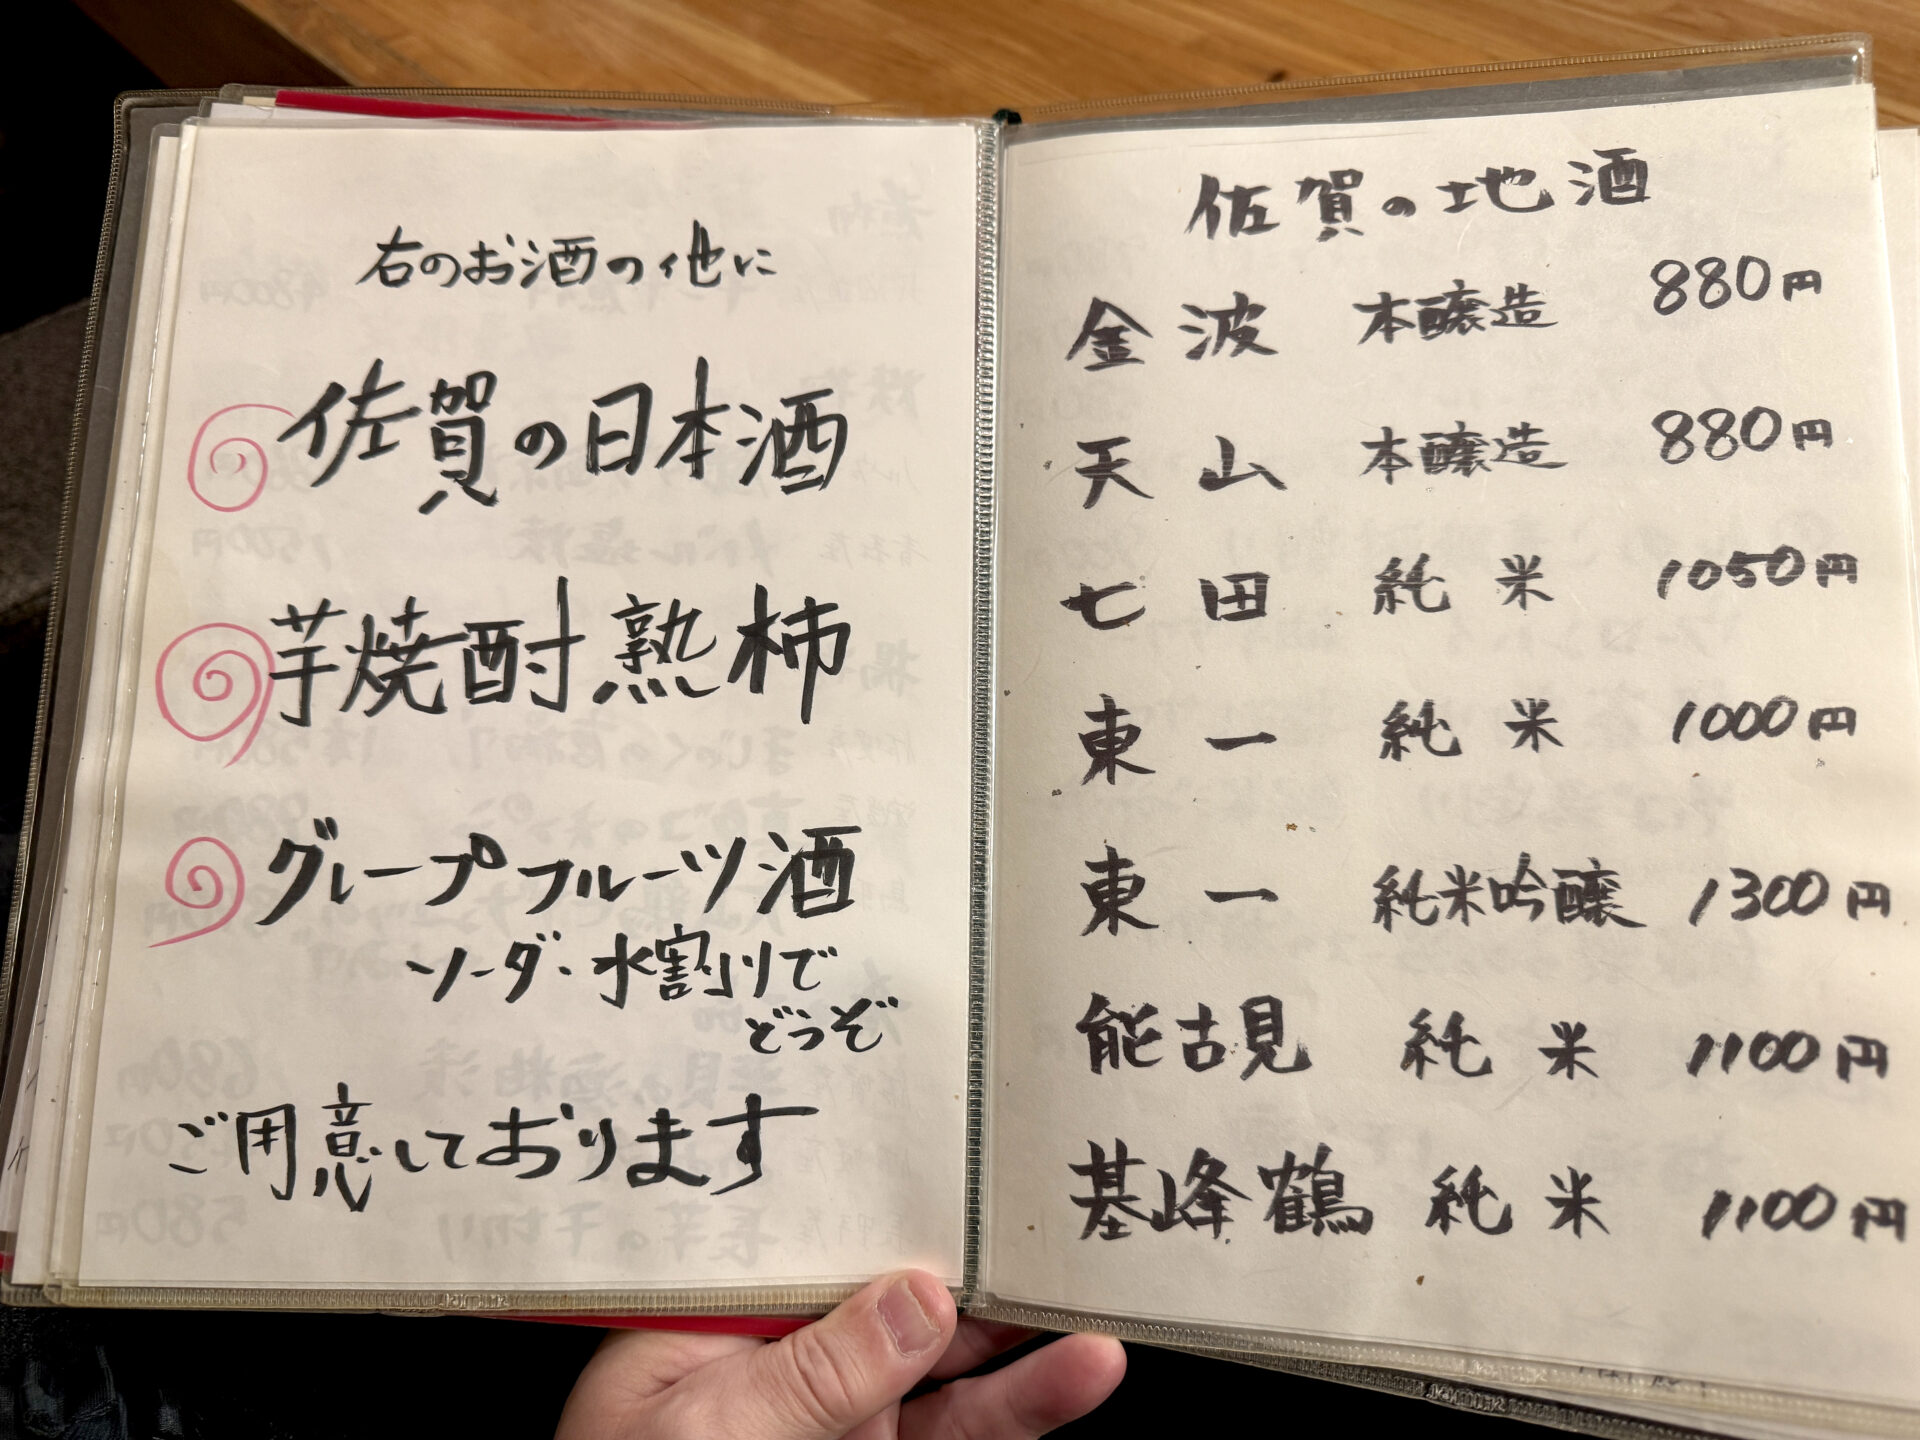 右のお酒の他に
佐賀の日本酒
芋焼酎熟柿
グレープフルーツ酒
ソーダ・水割りで
どうぞ
ご用意しております
佐賀の地酒
金波 本醸造 880円
天山 本醸造 880円
七田 純米 1050円
東一 純米 1000円
東一 純米吟醸 1300円
能古見 純米 1100円
基峰鶴 純米 1100円